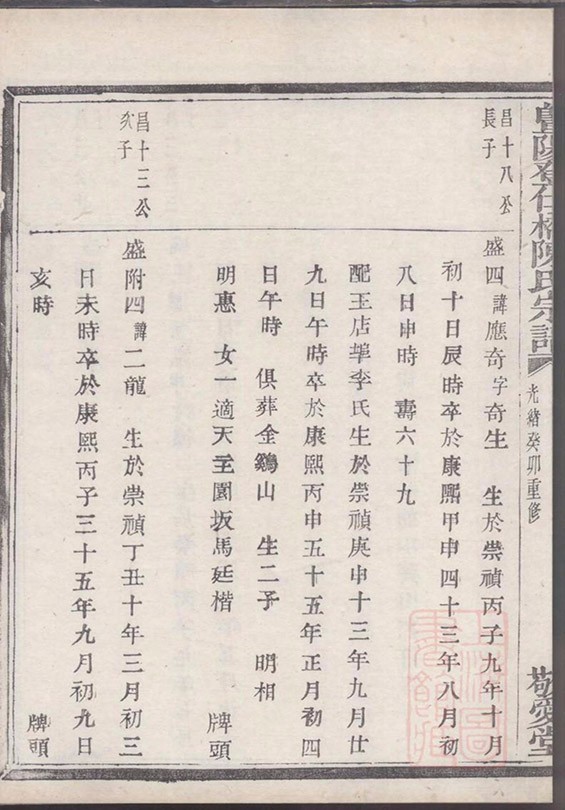 暨陽
宅格陳氏宗譜
光緒癸卯重修
敬愛堂
昌十八公
長子
盛四 諱應奇字奇生 生於崇禎丙子九年十月
初十日辰時卒於康熙甲申四十三年八月初
八日申時 壽六十九
配王店埠李氏生於崇禎庚申十三年九月廿
九日午時卒於康熙丙申五十五年正月初四
日午時 俱葬金鷄山 生二子 明相
明惠 女一適天王園坂馬廷楷 牌頭
昌十三公
次子
盛附四 諱二龍 生於崇禎丁丑十年三月初三
日未時卒於康熙丙子三十五年九月初九日
亥時 牌頭